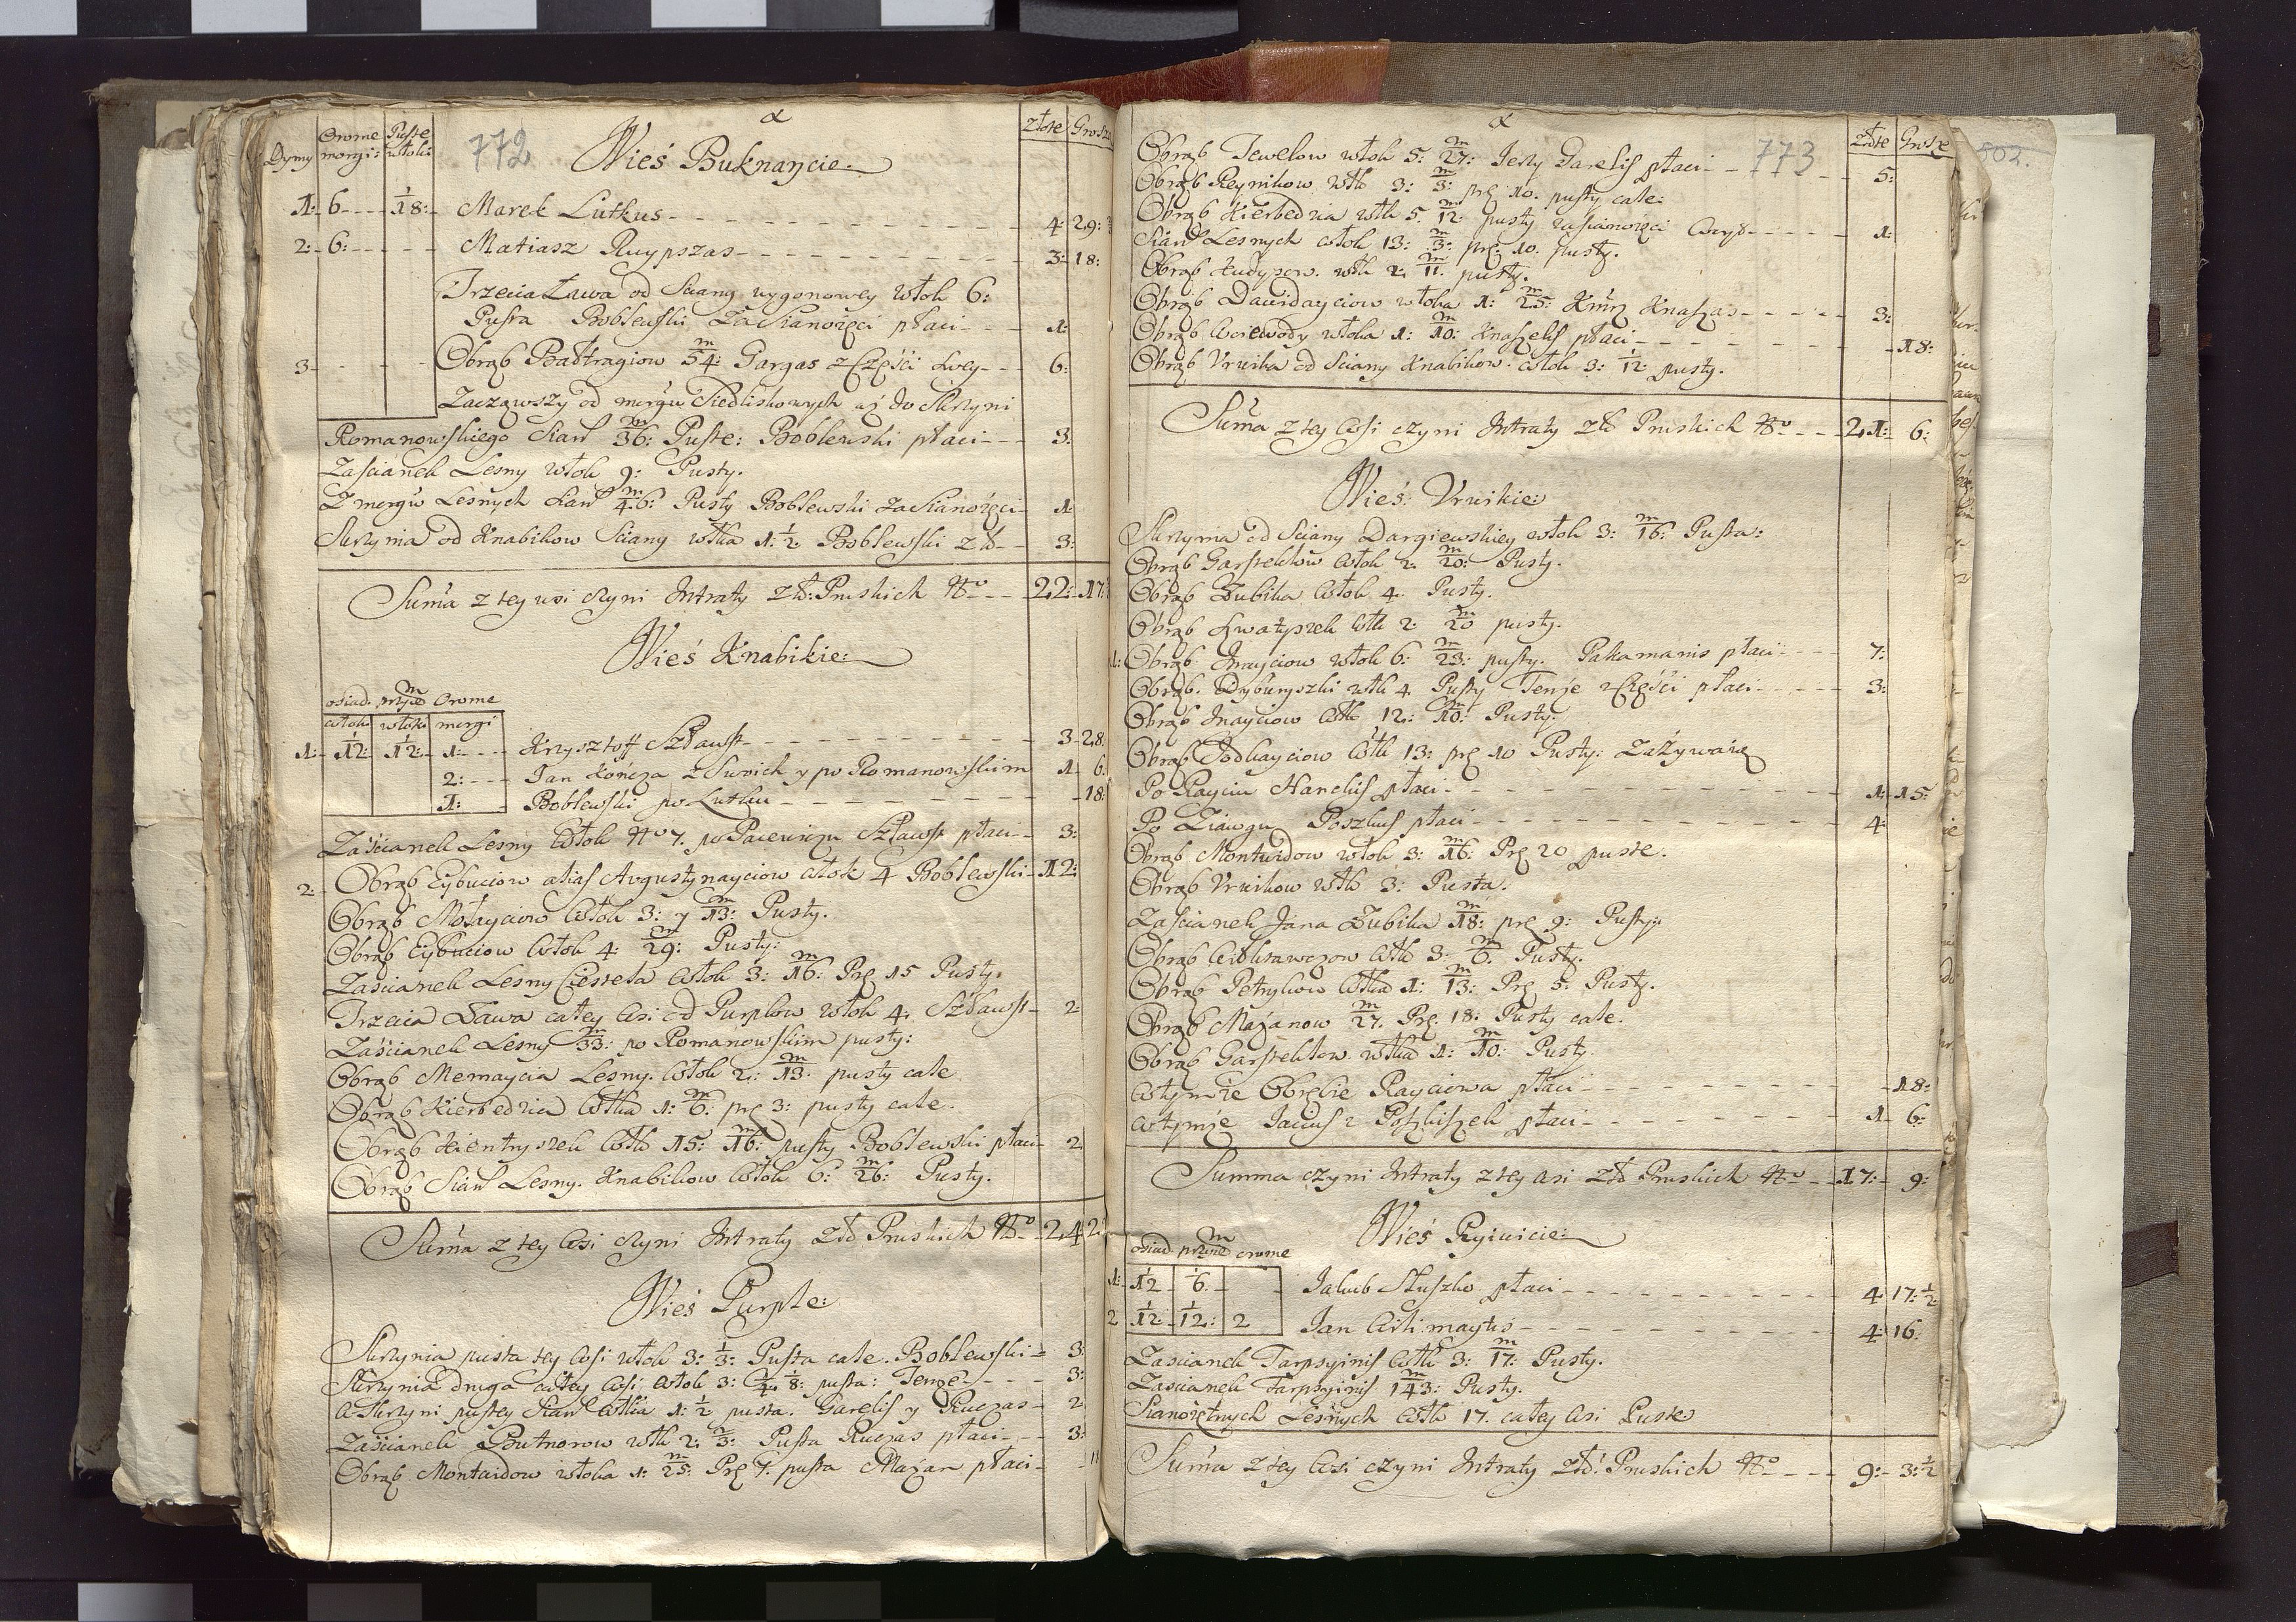 772
Dymy Orome morgi: Puste włoki: Wieś Buknaycie: złote Grosze
1: 6 1/18: Marek Lutkus 4: 29:
2: 6: Matiasz Ruypszas 3: 18:
Trzecia Ława od Sciany wygonowey włok 6:
Pusta Boblewski Za Sianożęci płaci 1:
3 Obrąb Bałtragiow m 54: Gargas z Części Swey 6:
Zacząwszy od morgu Siedliskowych aż do Skrzyni
Romanowskiego Sian m 36: Puste: Boblewski płaci 3:
Zascianek Lesny włok 9: Pusty.
Z morgów Lesnych Sian m 46: Pusty Boblewski za Sianożęci 1:
Skrzynia od Knabikow Sciany włka 1: 1/2 Boblewski zł 3:
Suma z tey wsi czyni Intraty Zł: Pruskich No 22: 17:
Wieś Knabikie:
osiad. przyię m Orome
włok włoki morgi
1: 1/12: 1/12: 1: Krzysztoff Szławst 3 28:
2: Jan Kończa z Swoich y po Romanowskim 1 6:
1: Boblewski po Lutku 18:
Zaścianek Lesny Włok No 7. po Pacewiczu Szławst płaci 3:
2: Obrąb Eybuciow alias Augustynayciow włok 4 Boblewski 12:
Obrąb Motayciow Włok 3: y m 13: Pusty.
Obrąb Eybuciow Włok 4: m 29: Pusty:
Zaścianek Lesny Ciesteta Włok 3: m 16: Prę 15 Pusty.
Trzecia Ława całey Wsi od Purplow włok 4: Szławst 2:
Zaścianek Lesny m 33: po Romanowskim pusty:
Obrąb Memaycia Lesny. Włok 2: m 13: pusty cale
Obrąb Kierbedzia Włka 1: m 6: prę 3: pusty cale.
Obrąb Kientryszek Włk 15: m 16: pusty Boblewski płaci 2
Obrąb Sian Lesny. Knabikow Włok 6: m 26: Pusty.
Suma z tey Wsi czyni Intraty Zł: Pruskich No 24 2:
Wieś Purple:
Skrzynia pusta tey Wsi włok 3: 1/3: Pusta cale. Boblewski 3:
Skrzynia druga całey Wsi włok 3: 1/4 1/8: pusta: Tenże 3:
W Skrzyni pustey Sian Włka 1: 1/2 pusta. Garelis y Ruczas 2
Zaścianek Butnorow włk 2: 2/3: Pusta Ruczas płaci 3:
Obrąb Montwidow włoka 1: m 25: Prę 7. pusta Mażan płaci
773
złote Grosze
Obrąb Jewelow włok 5: m 27: Jerzy Garelis płaci 5:
Obrąb Reynikow Włk 3: m 3: prę 10. pusty cale:
Obrąb Kierbedzia włk 5. m 12: pusty za sianożęci 1:
Sian Lesnych włok 13: m 3: prę: 10. pusty.
Obrąb Kudyszow. włk 2: m 11: pusty.
Obrąb Dawidayciow włoka 1: m 25: Knaszas 3:
Obrąb Woiewody włoka 1: m 10: Knaszelis płaci 18:
Obrąb Urwika od Sciany Knabikow: włok 3: 1/12 pusty.
Suma z tey Wsi czyni Intraty Zł Pruskich No 21: 6:
Wieś: Urwikie:
Skrzynia od Sciany Dargiewskiey włok 3: m 16: Pusta:
Obrąb Garstektow Włok 2: m 20: Pusty.
Obrąb Zubika Włok 4. Pusty.
Obrąb Kwatyszek Włk 2: m 20 pusty.
1: Obrąb Jnayciow włok 6: m 23: pusty. Pakamanis płaci 7:
Obrąb. Dyburyszki włk 4. Pusty Tenże z Części płaci 3:
Obrąb Jnayciow Włk 12: m 10: Pusty:
Obrąb Jodkayciow Włk 13: prę 10 Pusty: Zażywaią
Po Rayciu Hanckis płaci 1: 15:
Po Ziawgu Poszkus płaci 4:
Obrąb Montwidow włok 3: m 16: Prę 20 puste.
Obrąb Urwikow włk 3: Pusta.
Zascianek Jana Zubika m 18: prę 9: Pusty:
Obrąb Witkrawczow Włk 3: m 6. Pusty.
Obrąb Petrykow Włka 1: m 13: Prę 5: Pusty.
Obrąb Mażanow m 27. Prę. 18: Pusty cale.
Obrąb Garstektow. włka 1: m 10: Pusty.
W tymże Obrębie Rayciowa płaci 18:
W tymże Jacius z Poszkiszek płaci 1 6:
Summa czyni Intraty z tey Wsi Zł Pruskich No 17: 9:
Wieś Ryiwicie:
osiad. przyię m orome
1: 1/12 1/6. Jakub Słuszko płaci 4: 17: 1/2
2 1/12: 1/12: 2 Jan Witimaytis 4: 16:
Zascianek Tarpsyinis Włk 3: m 17: Pusty.
Zascianek Tarpsyinis m 143: Pusty.
Sianożętnych Lesnych Włk 17. całey Wsi Puste
Suma z tey Wsi czyni Intraty zł: Pruskich No 9: 3: 1/2
802.